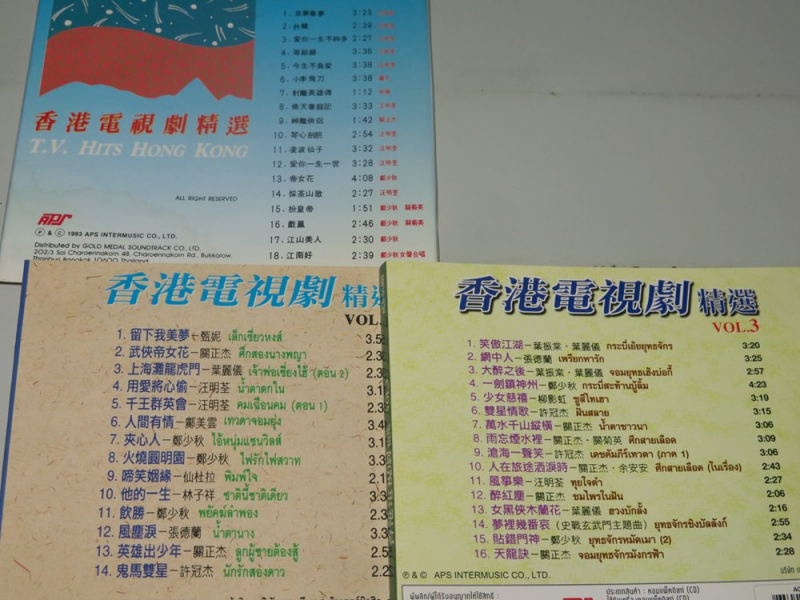 1. 3:23
2. 2:39
3. 愛你一生不夠多 2:27
4. 3:36
5. 今生不負愛 3:38
6. 小李飛刀 3:38
7. 射鵰英雄傳 1:12
8. 倚天屠龍記 3:33
9. 神鵰俠侶 1:42
10. 琴心劍膽 2:54 汪明荃
11. 凌波仙子 3:32 汪明荃
12. 愛你一生一世 3:28 汪明荃
13. 帝女花 4:08 鄭少秋
14. 採茶山歌 2:27 汪明荃
15. 扮皇帝 1:51 鄭少秋 關菊英
16. 戲鳳 2:46 鄭少秋 關菊英
17. 江山美人 2:30 鄭少秋
18. 江南好 2:39 鄭少秋女聲合唱
香港電視劇精選
T.V. HITS HONG KONG
ALL RIGHT RESERVED
APS
Ⓟ & © 1993 APS INTERMUSIC CO., LTD.
Distributed by GOLD MEDAL SOUNDTRACK CO., LTD.
202/3 Soi Charoennakorn 48, Charoennakorn Rd., Bukkarow,
Thonburi Bangkok 10600 Thailand
香港電視劇 精選
VOL.
1. 留下我美夢–甄妮 เล็กเซี่ยวหงส์ 3.5
2. 武俠帝女花–關正杰 ศึกสองนางพญา 2.3
3. 上海灘龍虎鬥–葉麗儀 เจ้าพ่อเซี่ยงไฮ้ (ตอน 2) 2.3
4. 用愛將心偷–汪明荃 น้ำตาดกใน 3.1
5. 千王群英會–關正杰 คมเฉือนคม (ตอน 1) 2.3
6. 人間有情–鄺美雲 เทวดาจอมยุ่ง 3.4
7. 夾心人–鄭少秋 ไอ้หนุ่มแซนวิลส์ 3.
8. 火燒圓明園–鄭少秋 ไฟรักไฟสวาท 3.3
9. 啼笑姻緣–仙杜拉 พิมพ์ใจ 2.1
10. 他的一生–林子祥 ชาตินี้ชาติเดียว 3.3
11. 飲勝–鄭少秋 พยัคฆ์ลำพอง 2.3
12. 風塵淚–張德蘭 น้ำตานาง 2.3
13. 英雄出少年–關正杰 ลูกผู้ชายต้องสู้ 2.5
14. 鬼馬雙星–許冠杰 นักรักสองดาว 2.2
香港電視劇 精選
VOL.3
1. 笑傲江湖–葉振棠・葉麗儀 กระบี่เย้ยยุทธจักร 3:20
2. 網中人–張德蘭 เพรียกหารัก 3:25
3. 大醉之後–葉振棠・葉麗儀 จอมยุทธเฮิงบ่อกี้ 2:57
4. 一劍鎮神州–鄭少秋 กระบี่สะท้านบู๊ลิ้ม 4:23
5. 少女慈禧–柳影虹 ซูสีไทเฮา 3:19
6. 雙星情歌–許冠杰 ฝันสลาย 3:15
7. 萬水千山縱橫–關正杰 น้ำตาชาวนา 3:06
8. 雨忘煙水裡–關正杰・關菊英 ศึกสายเลือด 3:09
9. 滄海一聲笑–許冠杰 เดชคัมภีร์เทวดา (ภาค 1) 3:06
10. 人在旅途洒淚時–關正杰・余安安 ศึกสายเลือด (ในเรื่อง) 2:43
11. 風箏樂–汪明荃 ทุยใจดำ 2:27
12. 醉紅塵–關正杰 ชมไพรในฝัน 2:06
13. 女黑俠木蘭花–葉麗儀 ฮวงบักลั้ง 2:16
14. 夢裡幾番哀 (史戰玄武門主題曲) ยุทธจักรชิงบัลลังก์ 2:55
15. 貼錯門神–鄭少秋 ยุทธจักรหมัดเมา (2) 2:34
16. 天龍訣–關正杰 จอมยุทธจักรมังกรฟ้า 2:28
Ⓟ & © APS INTERMUSIC CO., LT